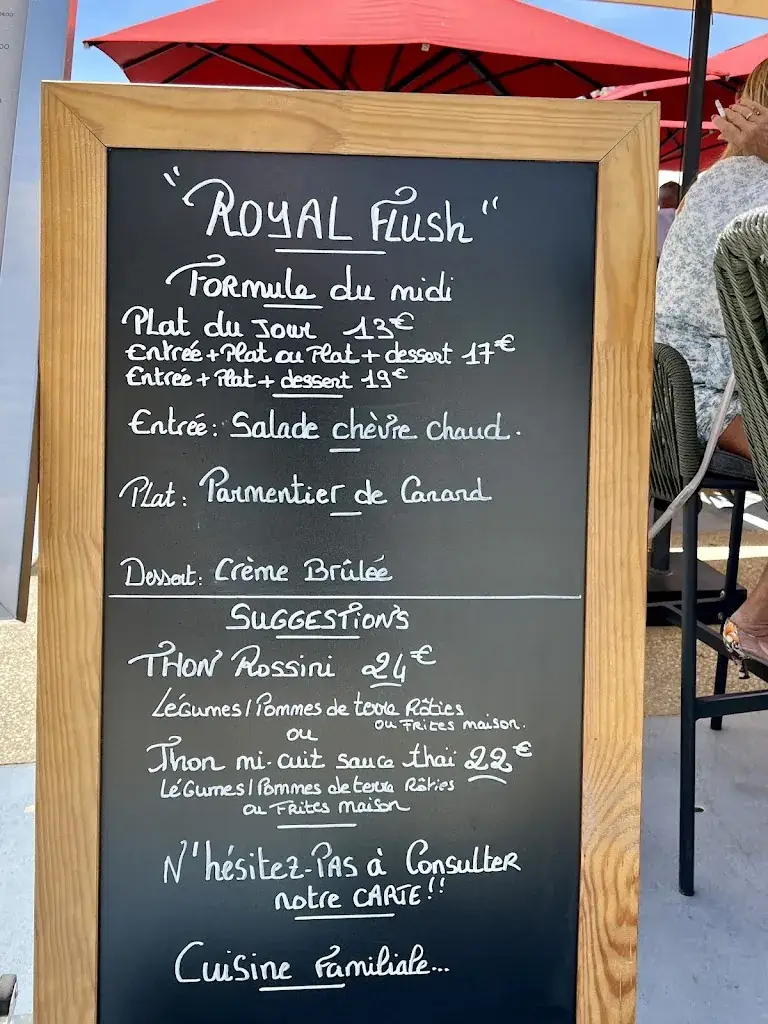 "ROYAL Flush"
Formule du midi
Plat du Jour 13€
Entrée + Plat ou Plat + dessert 17€
Entrée + Plat + dessert 19€
Entrée: Salade chèvre chaud.
Plat: Parmentier de Canard
Dessert: Crème Brûlée
SUGGESTIONS
THON Rossini 24€
Légumes / Pommes de terre Rôties
ou Frites maison.
ou
Thon mi-cuit sauce thaï 22€
Légumes / Pommes de terre Rôties
ou Frites maison
N'hésitez-PAS à Consulter
notre CARTE!!
Cuisine Familiale...